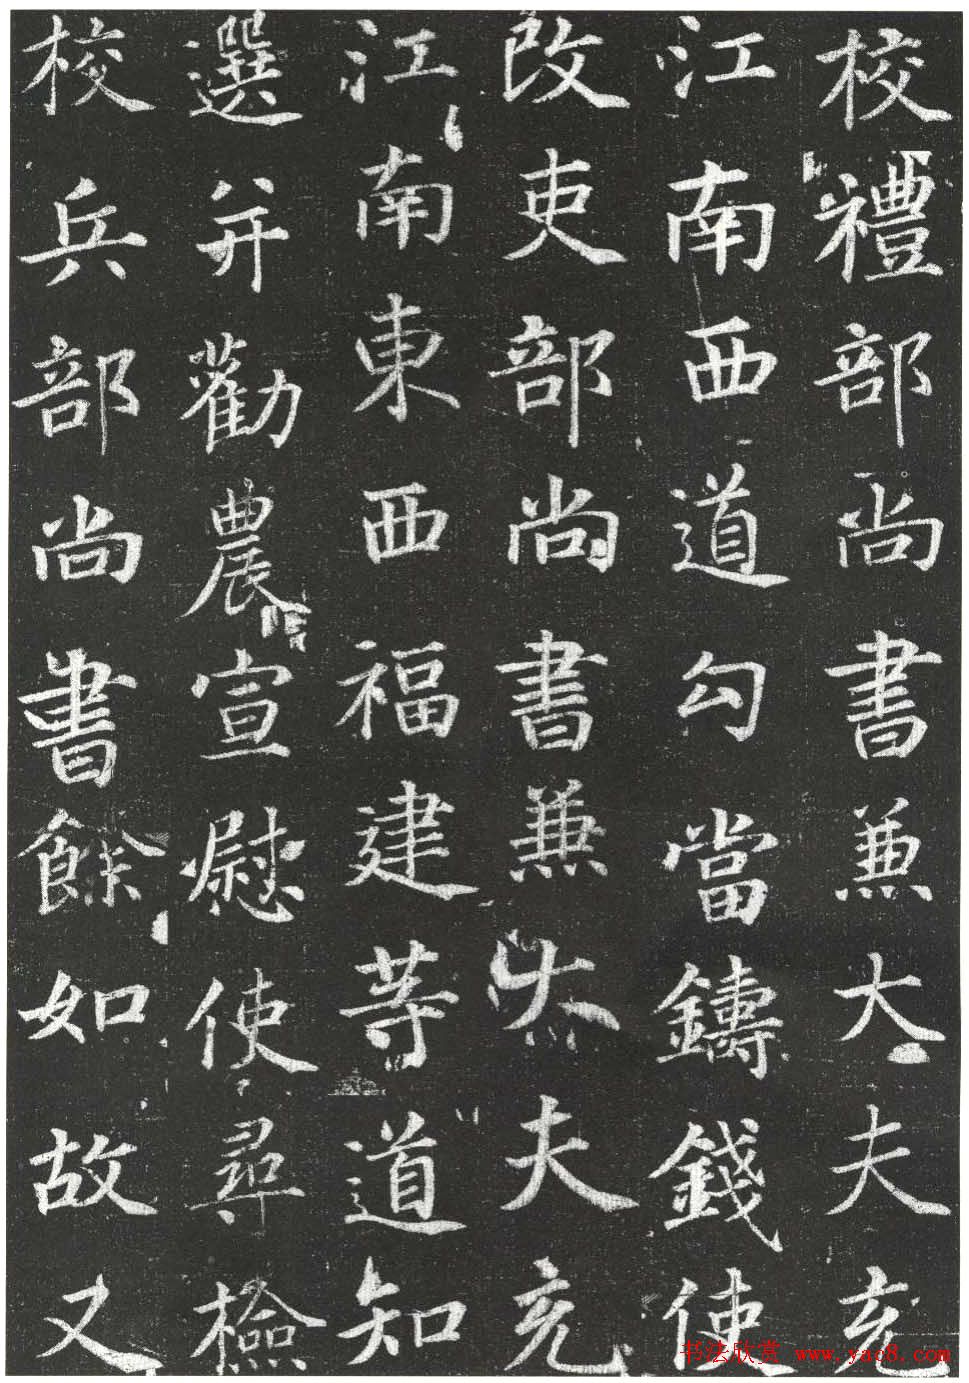 校禮部尚書兼大夫充
江南西道勾當鑄錢使
改吏部尚書兼大夫充
江南東西福建等道知
選并勸農宣慰使尋檢
校兵部尚書餘如故又
书法欣赏 www.yac8.com